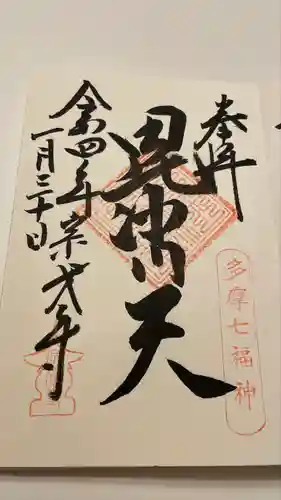 奉拝
多摩七福神
毘沙門天
令和四年
一月三十日
宗少寺